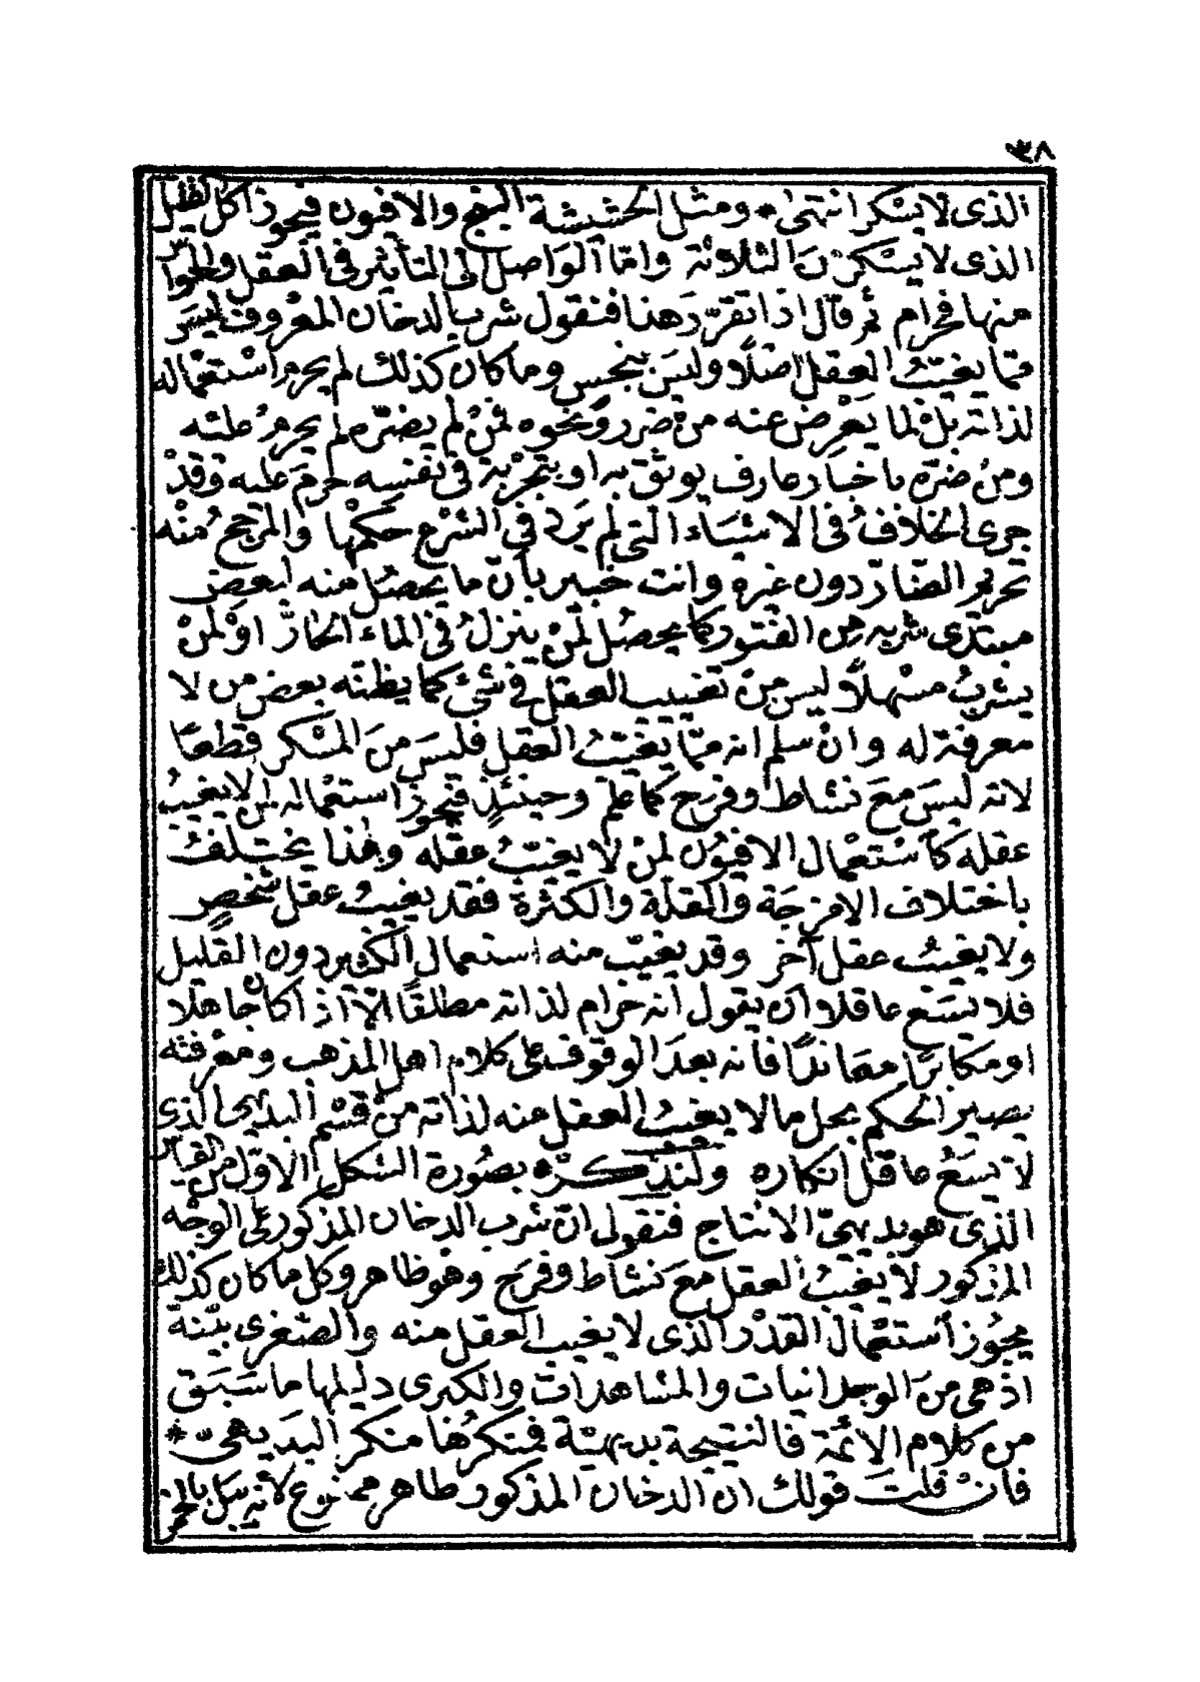 ٣٨
الذى لا يسكر انتهى * ومثل الحشيشة البنج والافيون فيجوز اكل القليل
الذى لا يسكر من الثلاثة واما الواصل الى التأثير فى العقل والحواس
منها فحرام ثم قال اذا تقرر هذا فنقول شرب الدخان المعروف ليس
مما يغيّب العقل اصلا وليس بنجس وما كان كذلك لم يحرم استعماله
لذاته بل لما يعرض عنه من ضرر ونحوه فمن لم يضره لم يحرم عليه
ومن ضره باخبار عارف يوثق به او بتجربة فى نفسه حرم عليه وقد
جرى الخلاف فى الاشياء التى لم يرد فى الشرع حكمها والمرجح منه
تحريم الضار دون غيره وانت خبير بأن ما يحصل منه لبعض
مبتدى شربه من الفتور كما يحصل لمن ينزل فى الماء الحار او لمن
يشرب مسهلا ليس من تغييب العقل فى شئ كما يظنه بعض من لا
معرفة له وان سلم انه مما يغيّب العقل فليس من المسكر قطعا
لانه ليس مع نشاط وفرح كما علم وحينئذ فيجوز استعماله لمن لا يغيب
عقله كاستعمال الافيون لمن لا يغيّب عقله وهذا يختلف
باختلاف الامزجة والقلة والكثرة فقد يغيب عقل شخص
ولا يغيب عقل آخر وقد يغيّب منه استعمال الكثير دون القليل
فلا يسع عاقلا ان يقول انه حرام لذاته مطلقا الا اذا كان جاهلا
او مكابرا معاندا فانه بعد الوقوف على كلام اهل المذهب ومعرفته
يصير الحكم بحل ما لا يغيب العقل منه لذاته من قسم البديهى الذى
لا يسع عاقل انكاره ولنذكره بصورة الشكل الاول من القياس
الذى هو بديهىّ الانتاج فنقول ان شرب الدخان المذكور على الوجه
المذكور لا يغيّب العقل مع نشاط وفرح وهو ظاهر وكل ما كان كذلك
يجوز استعمال القدر الذى لا يغيب العقل منه والصغرى بيّنة
اذ هى من الوجدانيات والمشاهدات والكبرى دليلها ما سبق
من كلام الائمة فالنتيجة بديهيّة فمنكرها منكر البديهىّ *
فان قلت قولك ان الدخان المذكور طاهر ممنوع لانه يبل بالخمر